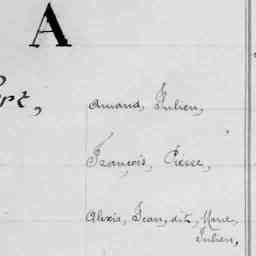 A
Amand, Julien,
François, Pierre,
Alexis, Jean, dit, Marie,
Julien,